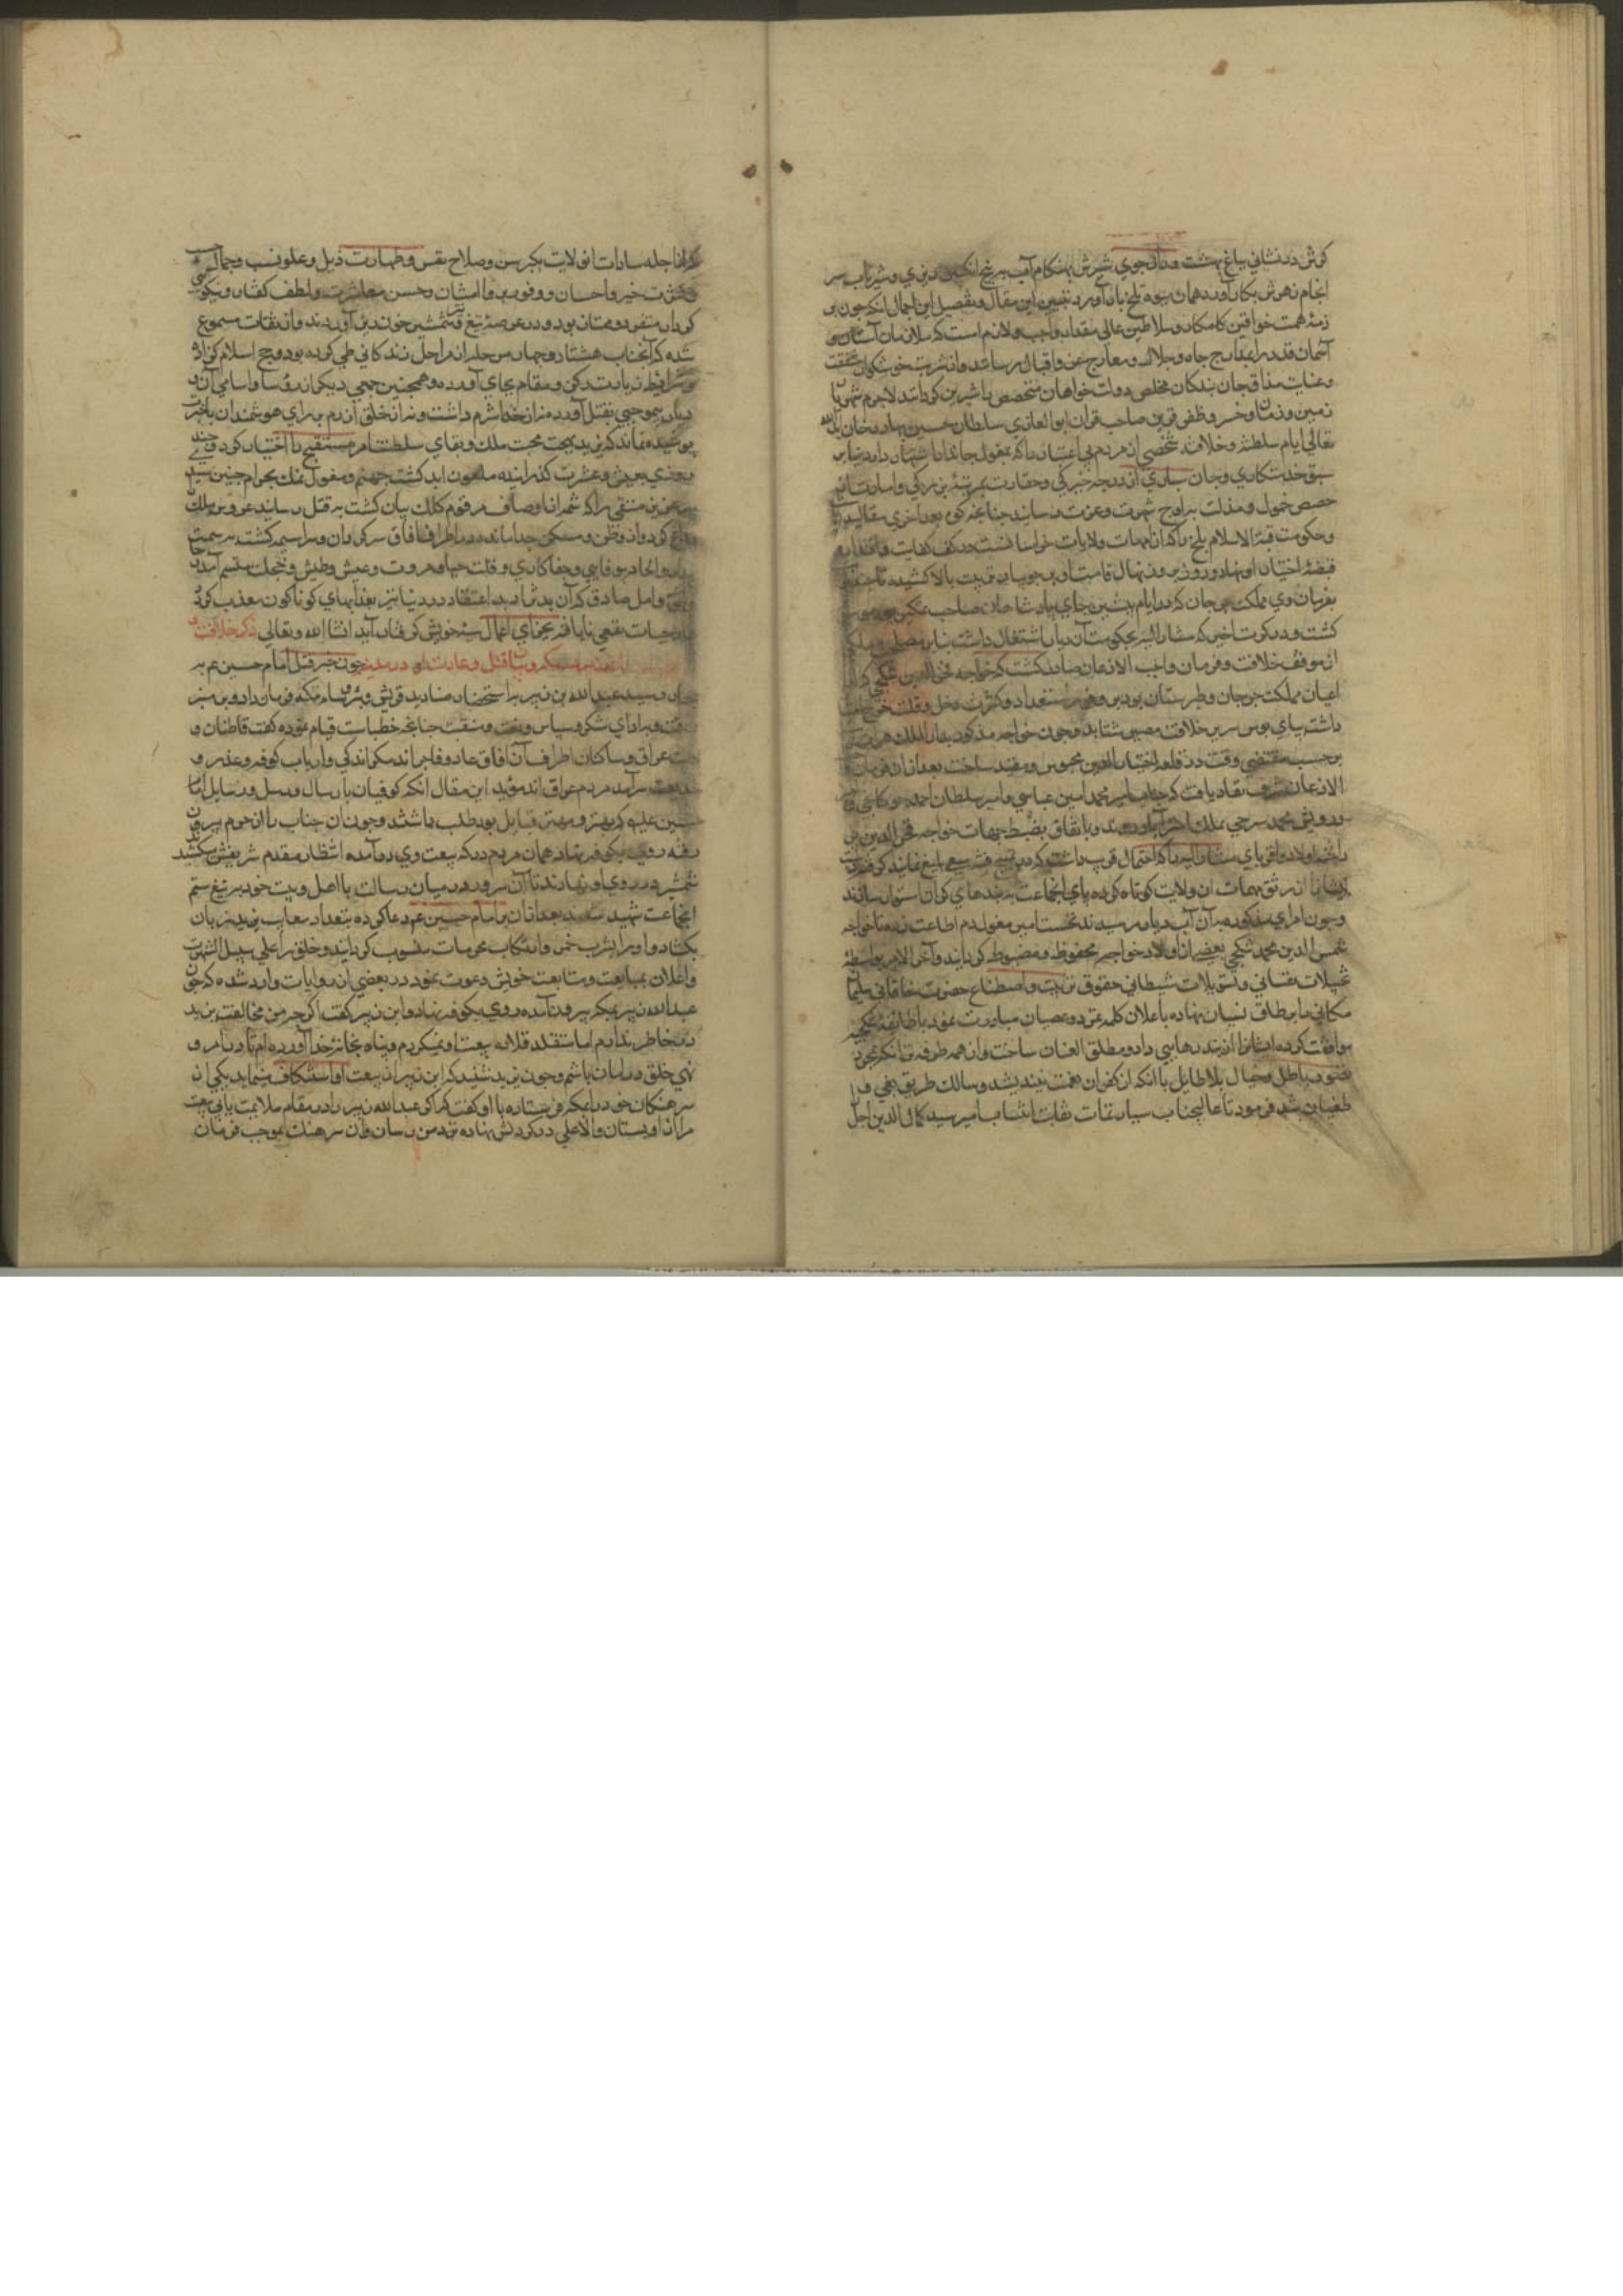 کرش درنشانی بباغ بهشت ور از جوی شیرش بهنکام آب به بیخ انکبین ریزی و شیر ناب سر
انجام زهرش بکار آورد همان میوه تلخ بار آورد تبیین این مقال و تفصیل این اجمال انکه چون بر
ذمه همت خواقین کامکار و سلاطین عالی مقدار واجب و لازم است که ملازمان آستان
آسمان قدر را بمدارج جاه و جلال و معارج عز و اقبال رسانند و از شربت خوشکوار شفقت
و عنایت مذاق جان بندکان مخلص و دولت خواهان متخصص را شیرین کردانند لاجرم شهریار
زمین و زمان و خسرو ظفر قرین صاحب قران ابو الغازی سلطان حسین بهادر خان
تعالی ایام سلطنته و خلافته شخصی از مردم بی اعتبار را که بمغول جانماز اشتهار دارد بنابر
سبق خدمتکاری و جان سپاری از درجه و حقارت بمرتبه بزرکی و امارت
حضیض خمول و مذلت بر اوج شهرت و عزت رسانید چنانچه کره بعد اخری مقالید
و حکومت قبة الاسلام بلخ را که از امهات ولایات خراسانست در کف کفایت و
قبضه اختیار او نهاد و روز بروز نهال قامت او بر جویبار تربیت بالا کشیده
بفرمان وی مملکت جرجان که در ایام پیشین جای پادشاهان صاحب تمکین بود
کشت و در کرت اخیر که مشار الیه بحکومت آن دیار اشتغال داشت بنابر مصلحت ملکی
از موقف خلافت و فرمان واجب الاذعان صادر کشت که خواجه فخر الدین
اعیان مملکت جرجان و طبرستان بود بر وفور استعداد و کثرت دخل و قلت خرج
داشته بپای بوس سریر خلافت مصیر شتابد و چون خواجه مذکور بدار الملک هراة
بر حسب مقتضی وقت در قلعه اختیار الدین محبوس و مقید ساخت بعد از ان فرمان
الاذعان شرف نفاد یافت که جناب امیر محمد امین عباسی و امیر سلطان احمد
و درویش محمد سرخی بملک استراباد روند و باتفاق بضبط جهات خواجه فخر الدین
و اولاد و اقربای مشار الیه را که احتمال قریب داشت که در فتنه سعی بلیغ نمایند
ایشان از رتق مهمات آن ولایت کوتاه کرده پای انجماعت به بندهای کران استوار سازند
و چون امرای مذکوره بر آن آب دیار رسیدند نخست امیر مغول دم اطاعت زده تا خواجه
شمس الدین محمد و بعضی از اولاد خواجه محفوظ و مضبوط کردانید و آخر الامر بواسطه
تخییلات نفسانی و تسویلات شیطانی حقوق تربیت و اصطناع حضرت خاقانی سلیمان
مکانی را بر طاق نسیان نهاده باعلان کلمه تمرد و عصیان مبادرت نمود با طایفه
موافقت کرده ایشانرا از بند رهایی داد و مطلق العنان ساخت و از همه طرفه تر آنکه بمجرد
تصور باطل و خیال بلا طایل با انکه از کفران نعمت نیندیشد و سالک طریق بغی و
طغیان شد فرمود تا عالیجناب سیادتمآب نقابت انتساب امیر سید کمال الدین اجل
که از اجله سادات ان ولایت بکبر سن و صلاح نفس و طهارت ذیل و علو نسب و جمال حسب
و کثرت خیر و احسان و وفور بر و امتنان و حسن معاشرت و لطف کفتار و نیکویی
کردار متفرد و ممتاز بود در عرصه تیغ شمشیر خون ریز آوردند و از ثقات مسموع
شده که آنجناب هشتاد و چهار مرحله از مراحل زندکانی طی کرده بود و حج اسلام کزارده
و شرایط زیارت رکن و مقام بجای آورده و همچنین جمعی دیکر از رؤسا و اسامی آن
دیار بی موجبی بقتل آورد نه از خدا شرم داشت و نه از خلق ازرم بر رای هوشمندان با خبرت
پوشیده نماند که یزید بجهت محبت ملک و بقای سلطنت امر مستقبح را اختیار کرد
روزی بعیش و عشرت کذرانیده ملعون ابد کشت جهنم و مغول نمک بحرام چنین سید
عزیز متقی را که شمه از اوصاف مرقوم کلک بیان کشت به قتل رسانید عروس ملک
وداع کرد و از وطن و مسکن جدا مانده در اطراف آفاق سرکردان و سراسیمه کشت
و الحاد بیوفایی و جفا کاری و قلت حیا و مروت و عیش و طیش و خجلت متسم آمد
و امل صادق که آن بدنهاد بد اعتقاد در دنیا نیز بعذابهای کوناکون معذب کردد
از حیات نفعی نایافته بجزای اعمال سیئه خویش کرفتار آید انشا الله وتعالی ذکر خلافت
قتل و غارت او در مدینه چون خبر قتل امام حسین عم به
رسید عبد الله بن زبیر به استحضار صنادید قریش و رؤسا مکه فرمان داد و بر منبر
رفت و بر ادای شکر و سپاس و نعت و منقبت چنانچه خطباست قیام نموده کفت قاطنان
عراق و ساکنان اطراف آن آفاق غادر و فاجر اند مکر اندکی و ارباب کوفه و غدر و
خدیعت سرآمد مردم عراق اند مؤید این مقال انکه کوفیان بارسال رسل و رسایل امام
حسین علیه که بهتر و مهتر قبایل بود طلب داشتند و چون آن جناب را از حرم بیرون
رفته روی بکوفه نهاد همان مردم که به بیعت وی در آمده انتظار مقدم شریفش میکشیدند
شمشیر در روی او نهادند تا آن سرور در میان رسالت با اهل و بیت خود به تیغ ستم
انجماعت شهید شدند بعد از آن بر امام حسین عم دعا کرده بتعداد معایب یزید زبان
بکشاد و او را بشرب خمر و ارتکاب محرمات منسوب کردانید و خلق را علی سبیل الشهرت
و اعلان بمبایعت و متابعت خویش دعوت نمود در بعضی از روایات وارد شده که چون
عبد الله زبیر بمکه بیرون آمده روی بکوفه نهاد و ابن زبیر کفت اکر چه من مخالفت یزید
در خاطر ندارم اما متقلد قلاده بیعت او نمیکردم و پناه بخانه خدا آورده ام تا در امر و
نهی خلق در امان باشم و چون یزید شنید که ابن زبیر از بیعت او استنکاف مینماید یکی از
سرهنکان خود را بمکه فرستاده با او کفت که اکر عبد الله زبیر را در مقام ملایمت یابی بیعت
مرا از او بستان والا غلی در کردنش نهاده نزد من رسان و آن سرهنک بموجب فرمان